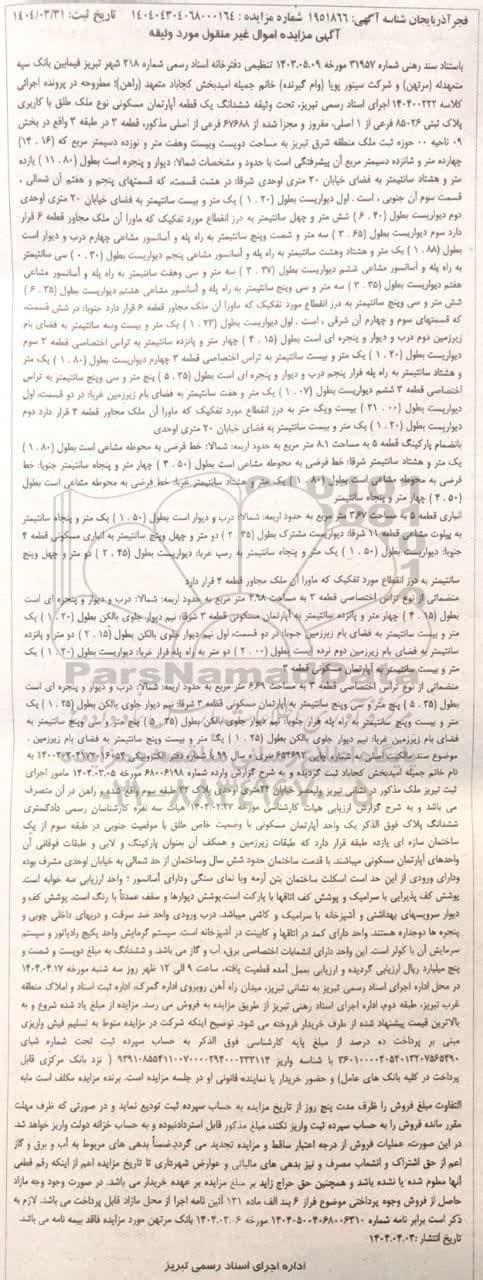 فجر آذربایجان شناسه آگهی: ۱۹۵۱۸۶۶ شماره مزایده : ۱۴۰۴۰۴۳۰۴۰۶۸۰۰۰۱۶۴ تاریخ ثبت: ۱۴۰۴/۰۳/۳۱
آگهی مزایده اموال غیر منقول مورد وثیقه
باستناد سند رهنی شماره ۳۱۹۵۷ مورخه ۱۴۰۳.۰۵.۰۹ تنظیمی دفترخانه اسناد رسمی شماره ۲۱۸ شهر تبریز فیمابین بانک سپه
متعهدله (مرتهن) و شرکت سینور پویا (وام گیرنده) خانم جمیله امیدبخش کجاباد متعهد (راهن)؛ مطروحه در پرونده اجرائی
کلاسه ۱۴۰۴۰۰۲۲۲ اجرای اسناد رسمی تبریز، تحت وثیقه ششدانگ یک قطعه آپارتمان مسکونی نوع ملک طلق با کاربری
پلاک ثبتی ۸۵۰۲۶ فرعی از ۱ اصلی، مفروز و مجزا شده از ۶۷۶۸۸ فرعی از اصلی مذکور، قطعه ۳ در طبقه ۳ واقع در بخش
۰۹ ناحیه ۰۰ حوزه ثبت ملک منطقه شرق تبریز به مساحت دویست وبیست وهفت متر و نوزده دسیمتر مربع که (۱۶ . ۱۴)
چهارده متر و شانزده دسیمتر مربع آن پیشرفتگی است با حدود و مشخصات شمالا: دیوار و پنجره است بطول (۸۰ . ۱۱) یازده
متر و هشتاد سانتیمتر به فضای خیابان ۲۰ متری اوحدی شرقا: در هشت قسمت، که قسمتهای پنجم و هفتم آن شمالی ،
قسمت سوم آن جنوبی ، است . اول دیواریست بطول (۲۰ . ۱) یک متر و بیست سانتیمتر به فضای خیابان ۲۰ متری اوحدی
دوم دیواریست بطول (۴۰ . ۶) شش متر و چهل سانتیمتر به درز انقطاع مورد تفکیک که ماورا آن ملک مجاور قطعه ۶ قرار
دارد سوم دیواریست بطول (۶۵ . ۳) سه متر و شصت وپنج سانتیمتر به راه پله و آسانسور مشاعی چهارم درب و دیوار است
بطول (۸۸ . ۱) یک متر و هشتاد وهشت سانتیمتر به راه پله و آسانسور مشاعی پنجم دیواریست بطول (۳۰ . ۰) سی سانتیمتر
به راه پله و آسانسور مشاعی ششم دیواریست بطول (۳۷ . ۳) سه متر و سی وهفت سانتیمتر به راه پله و آسانسور مشاعی
هفتم دیواریست بطول (۳۵ . ۳) سه متر و سی وپنج سانتیمتر به راه پله و آسانسور مشاعی هشتم دیواریست بطول (۳۵ . ۶)
شش متر و سی وپنج سانتیمتر به درز انقطاع مورد تفکیک که ماورا آن ملک مجاور قطعه ۶ قرار دارد جنوبا: در شش قسمت،
که قسمتهای سوم و چهارم آن شرقی ، است . اول دیواریست بطول (۲۳ . ۱) یک متر و بیست وسه سانتیمتر به فضای بام
زیرزمین دوم درب و دیوار و پنجره ای است بطول (۱۵ . ۴) چهار متر و پانزده سانتیمتر به تراس اختصاصی قطعه ۳ سوم
دیواریست بطول (۲۰ . ۱) یک متر و بیست سانتیمتر به تراس اختصاصی قطعه ۳ چهارم دیواریست بطول (۸۰ . ۱) یک متر
و هشتاد سانتیمتر به راه پله فرار پنجم درب و دیوار و پنجره ای است بطول (۳۵ . ۵) پنج متر و سی وپنج سانتیمتر به تراس
اختصاصی قطعه ۳ ششم دیواریست بطول (۰۷ . ۱) یک متر و هفت سانتیمتر به فضای بام زیرزمین غربا: در دو قسمت، اول
دیواریست بطول (۰۰ . ۲۱) بیست ویک متر به درز انقطاع مورد تفکیک که ماورا آن ملک مجاور قطعه ۴ قرار دارد دوم
دیواریست بطول (۲۰ . ۱) یک متر و بیست سانتیمتر به فضای خیابان ۲۰ متری اوحدی
بانضمام پارکینگ قطعه ۵ به مساحت ۸.۱ متر مربع به حدود اربعه: شمالا: خط فرضی به محوطه مشاعی است بطول (۸۰ . ۱)
یک متر و هشتاد سانتیمتر شرقا: خط فرضی به محوطه مشاعی است بطول (۵۰ . ۴) چهار متر و پنجاه سانتیمتر جنوبا: خط
فرضی به محوطه مشاعی است بطول (۸۰ . ۱) یک متر و هشتاد سانتیمتر غربا: خط فرضی به محوطه مشاعی است بطول
(۵۰ . ۴) چهار متر و پنجاه سانتیمتر
انباری قطعه ۵ به مساحت ۳.۶۷ متر مربع به حدود اربعه: شمالا: درب و دیوار است بطول (۵۰ . ۱) یک متر و پنجاه سانتیمتر
به پیلوت مشاعی قطعه ۱۱ شرقا: دیواریست مشترک بطول (۴۵ . ۲) دو متر و چهل وپنج سانتیمتر به انباری مسکونی قطعه ۴
جنوبا: دیواریست بطول (۵۰ . ۱) یک متر و پنجاه سانتیمتر به رمپ غربا: دیواریست بطول (۴۵ . ۲) دو متر و چهل وپنج
سانتیمتر به درز انقطاع مورد تفکیک که ماورا آن ملک مجاور قطعه ۴ قرار دارد
منضماتی از نوع تراس اختصاصی قطعه ۳ به مساحت ۴.۹۸ متر مربع به حدود اربعه: شمالا: درب و دیوار و پنجره ای است
بطول (۱۵ . ۴) چهار متر و پانزده سانتیمتر به آپارتمان مسکونی قطعه ۳ شرقا: نیم دیوار جلوی بالکن بطول (۲۰ . ۱) یک
متر و بیست سانتیمتر به فضای بام زیرزمین جنوبا: در دو قسمت، اول نیم دیوار جلوی بالکن بطول (۱۵ . ۲) دو متر و پانزده
سانتیمتر به فضای بام زیرزمین دوم نرده ایست بطول (۰۰ . ۲) دو متر به راه پله فرار غربا: دیواریست بطول (۲۰ . ۱) یک
متر و بیست سانتیمتر به آپارتمان مسکونی قطعه ۳
منضماتی از نوع تراس اختصاصی قطعه ۳ به مساحت ۶.۶۹ متر مربع به حدود اربعه: شمالا: درب و دیوار و پنجره ای است
بطول (۳۵ . ۵) پنج متر و سی وپنج سانتیمتر به آپارتمان مسکونی قطعه ۳ شرقا: نیم دیوار جلوی بالکن بطول (۲۵ . ۱) یک
متر و بیست وپنج سانتیمتر به راه پله فرار جنوبا: نیم دیوار جلوی بالکن بطول (۳۵ . ۵) پنج متر و سی وپنج سانتیمتر به
فضای بام زیرزمین غربا: نیم دیوار جلوی بالکن بطول (۲۵ . ۱) یک متر و بیست وپنج سانتیمتر به فضای بام زیرزمین .
موضوع سند مالکیت اصلی به شماره چاپی ۶۵۴۶۹۲ سری د سال ۹۹ با شماره دفتر الکترونیکی به
نام خانم جمیله امیدبخش کجاباد ثبت گردیده و به شرح گزارش وارده شماره ۶۸۰۰۶۱۹۸ مورخه ۱۴۰۴.۰۳.۰۵ مامور اجرای
ثبت تبریز ملک مذکور در نشانی تبریز ولیعصر خیابان ۲۴متری اوحدی پلاک ۳۲ طبقه سوم واقع شده و راهن در آن متصرف
می باشد و به شرح گزارش ارزیابی هیات کارشناسی مورخه ۱۴۰۴.۰۲.۲۷ هیات سه نفره کارشناسان رسمی دادگستری
ششدانگ پلاک فوق الذکر یک واحد آپارتمان مسکونی با وضعیت خاص طلق با موقعیت جنوبی در طبقه سوم از یک
ساختمان سازه ای یازده طبقه قرار دارد که طبقات زیرزمین و همکف آن بعنوان پارکینگ و لابی و طبقات فوقانی آن
واحدهای آپارتمان مسکونی میباشند. با قدمت ساختمان حدود شش سال وساختمان از حد شمالی به خیابان اوحدی مشرف بوده
ودارای ورودی از این حد است اسکلت ساختمان بتن آرمه وبا نمای سنگی ودارای آسانسور ؛ واحد ارزیابی سه خوابه است.
پوشش کف پذیرایی با سرامیک و پوشش کف اتاقها با پارکت است.پوشش دیوارها و سقف عمدتاً با رنگ است. پوشش کف و
دیوار سرویسهای بهداشتی و آشپزخانه با سرامیک و کاشی میباشد. درب ورودی واحد ضد سرقت و دربهای داخلی چوبی و
پنجره ها دوجداره هستند. واحد دارای کمد در اتاقها و کابینت در آشپزخانه است. سیستم گرمایش واحد پکیج رادیاتور و سیستم
سرمایش آن با کولر است. این واحد دارای انشعابات اختصاصی برق، آب و گاز می باشد. و ششدانگ به مبلغ دویست و شصت و
پنج میلیارد ریال ارزیابی گردیده و ارزیابی بعمل آمده قطعیت یافته، ساعت ۹ الی ۱۲ ظهر روز سه شنبه مورخه ۱۴۰۴.۰۴.۱۷
در محل اداره اجرای اسناد رسمی تبریز به نشانی تبریز، میدان راه آهن روبروی اداره گمرک، اداره ثبت اسناد و املاک منطقه
غرب تبریز، طبقه دوم، اداره اجرای اسناد رهنی تبریز از طریق مزایده به فروش می رسد. مزایده از مبلغ یاد شده شروع و به
بالاترین قیمت پیشنهاد شده از طرف خریدار فروخته می شود. توضیح اینکه شرکت در مزایده منوط به تسلیم فیش واریزی
مبنی بر پرداخت ده درصد از مبلغ پایه کارشناسی فوق الذکر به حساب سپرده ثبت تحت شماره شبای
۳۶۰۱۰۰۰۰۴۰۵۴۰۱۳۲۰۷۵۶۵۴۹۰ با شناسه واریز ۹۳۹۱۰۸۵۵۴۱۱۰۰۷۰۰۰۰۲۹۴۰۰۰۲۳۳۱۱۴ ( نزد بانک مرکزی قابل
پرداخت در کلیه بانک های عامل) و حضور خریدار یا نماینده قانونی او در جلسه مزایده است. برنده مزایده مکلف است مابه
التفاوت مبلغ فروش را ظرف مدت پنج روز از تاریخ مزایده به حساب سپرده ثبت تودیع نماید و در صورتی که ظرف مهلت
مقرر مانده فروش را به حساب سپرده ثبت واریز نکند، مبلغ مذکور قابل استردادنبوده و به حساب خزانه دولت واریز خواهد شد.
در این صورت، عملیات فروش از درجه اعتبار ساقط و مزایده تجدید می گردد.ضمناً بدهی های مربوط به آب و برق و گاز
اعم از حق اشتراک و انشعاب مصرف و نیز بدهی های مالیاتی و عوارض شهرداری تا تاریخ مزایده اعم از اینکه رقم قطعی
آنها معلوم شده یا نشده باشد و همچنین حق حراج زاید بر مبلغ مزایده بر عهده خریدار می باشد. در صورت وجود وجه مازاد
حاصل از فروش وجوه پرداختی موضوع فراز ۶ بند الف ماده ۱۲۱ آئین نامه اجرا از محل مازاد قابل پرداخت می باشد. لازم به
ذکر است برابر نامه شماره ۱۴۰۴۰۵۰۰۴۰۶۸۰۰۶۳۱۰ مورخه ۱۴۰۴.۰۲.۰۶ بانک مرتهن مورد مزایده فاقد بیمه نامه می باشد.
تاریخ انتشار :۱۴۰۴.۰۴.۰۳
اداره اجرای اسناد رسمی تبریز
ParsNamadData